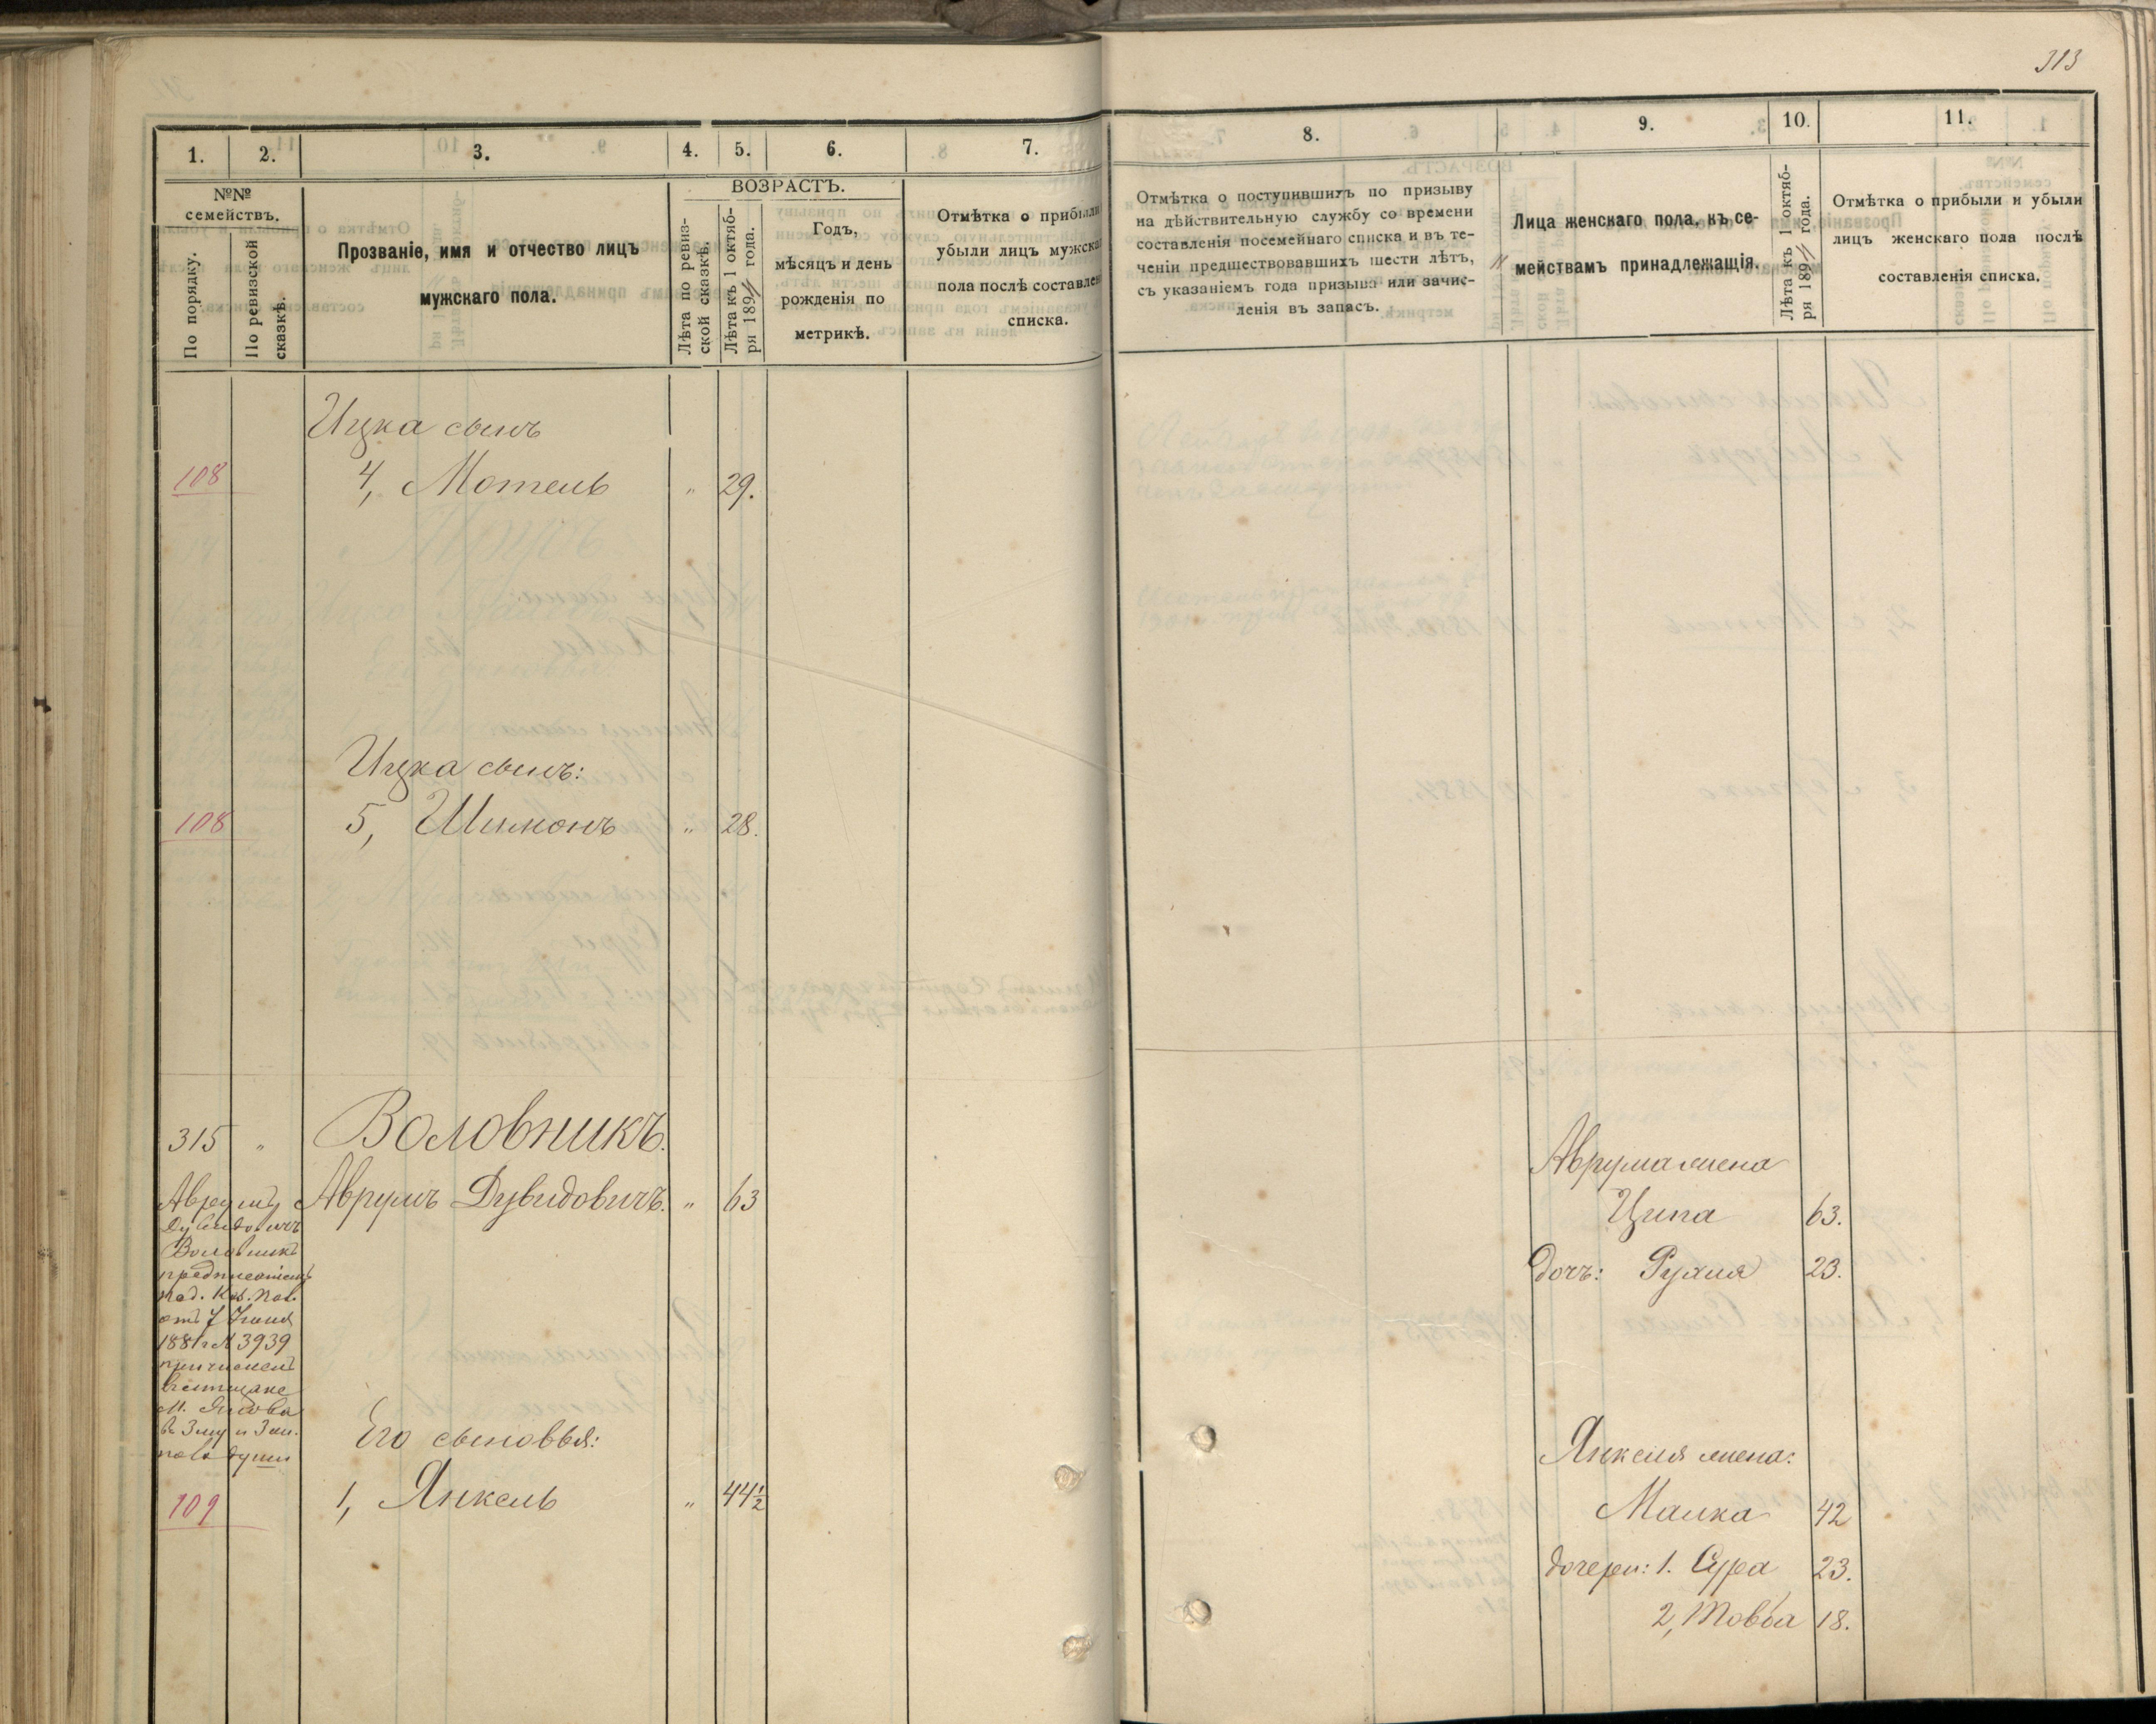 313
1. 2. 3. 4. 5. 6. 7. 8. 9. 10. 11.
№№
семействъ.
По порядку.
По ревизской
сказкѣ.
Прозваніе, имя и отчество лицъ
мужскаго пола.
ВОЗРАСТЪ.
Лѣта по ревиз-
ской сказкѣ.
Лѣта къ 1 октяб-
ря 189 года.
Годъ,
мѣсяцъ и день
рожденія по
метрикѣ.
Отмѣтка о прибыли
убыли лицъ мужска
пола послѣ составлен
списка.
Отмѣтка о поступившихъ по призыву
на дѣйствительную службу со времени
составленія посемейнаго списка и въ те-
ченіи предшествовавшихъ шести лѣтъ,
съ указаніемъ года призыва или зачис-
ленія въ запасъ.
Лица женскаго пола, къ се-
мействамъ принадлежащія.
Лѣта къ 1 октяб-
ря 189 года.
Отмѣтка о прибыли и убыли
лицъ женскаго пола послѣ
составленія списка.
Ицка сынъ
108 4, Мотель " 29.
Ицка сынъ:
108 5, Шимонъ " 28.
315 " Воловникъ.
Аврумъ Дувидовичъ. " 63
Аврумъ
Дувидовичъ
Воловникъ
предписаніемъ
отъ 7 Іюня
1881 г № 3939
причисленъ
Его сыновья:
109 1, Янкель " 44½
Аврума жена
Ципа 63.
дочь: Рухля 23.
Янкеля жена:
Малка 42
дочери: 1. Сура 23.
2, Товба 18.